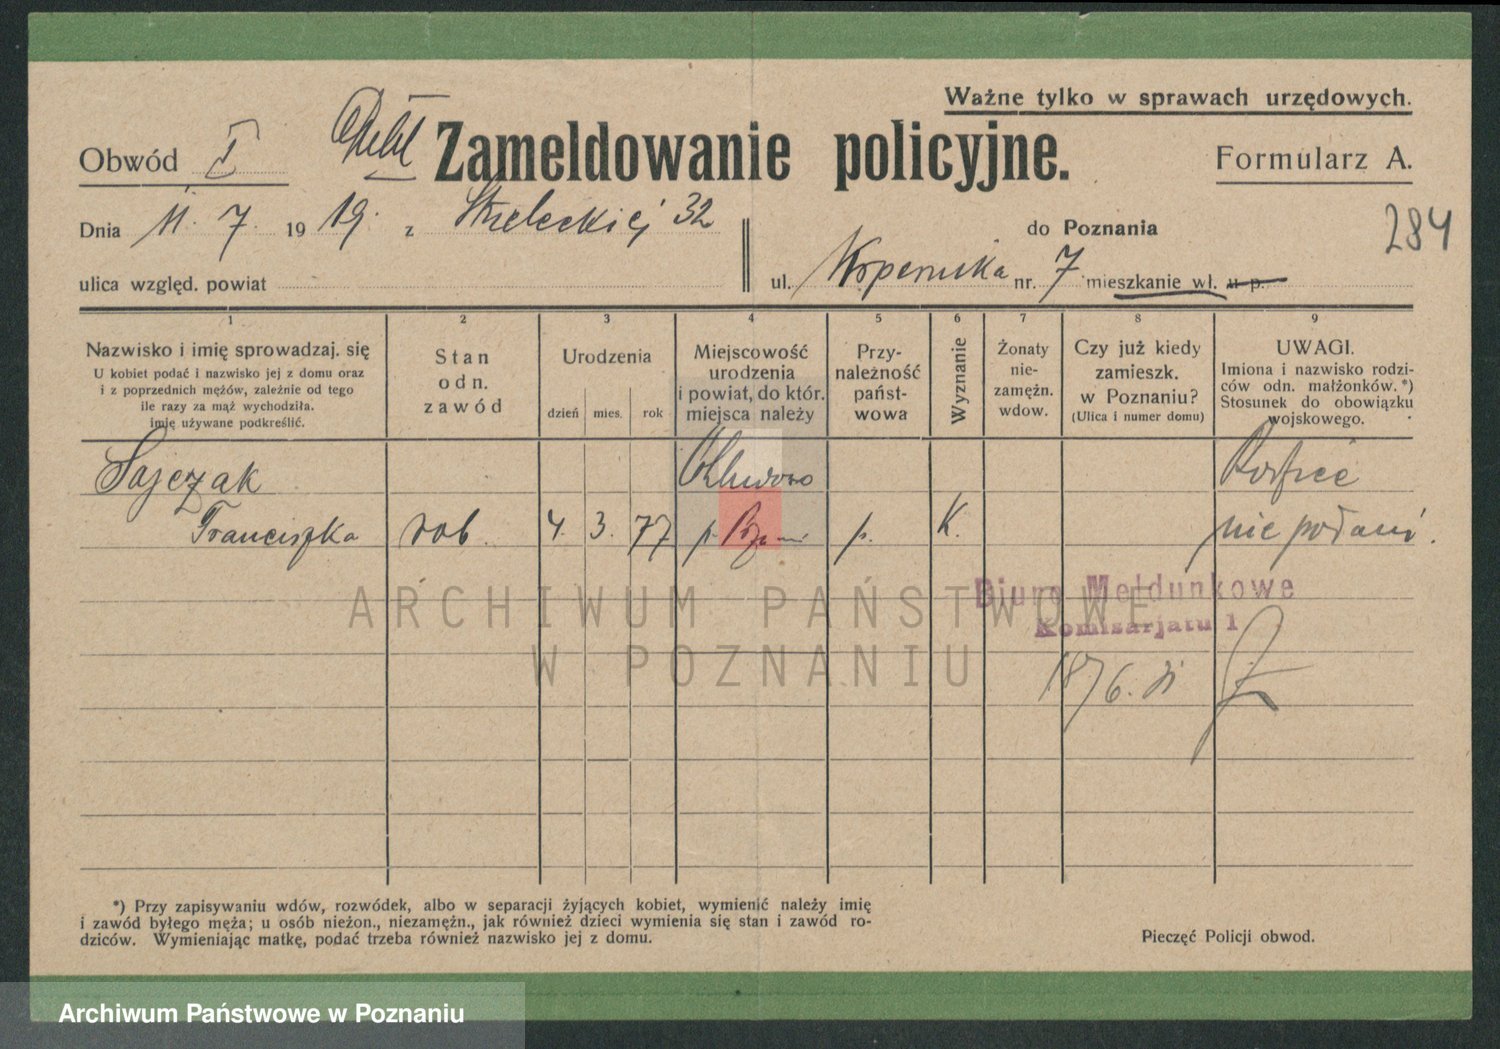 Ważne tylko w sprawach urzędowych.
Obwód I Zameldowanie policyjne. Formularz A.
Dnia 11. 7. 1919. z Strzeleckiej 32 do Poznania 284
ulica względ. powiat ul. Kopernika nr. 7 mieszkanie wł. u p.
1 2 3 4 5 6 7 8 9
Nazwisko i imię sprowadzaj. się
U kobiet podać i nazwisko jej z domu oraz
i z poprzednich mężów, zależnie od tego
ile razy za mąż wychodziła.
imię używane podkreślić.
Stan
odn.
zawód
Urodzenia
dzień mies. rok
Miejscowość
urodzenia
i powiat, do któr.
miejsca należy
Przy-
należność
państ-
wowa
Wyznanie
Żonaty
nie-
zamężn.
wdow.
Czy już kiedy
zamieszk.
w Poznaniu?
(Ulica i numer domu)
UWAGI.
Imiona i nazwisko rodzi-
ców odn. małżonków.*)
Stosunek do obowiązku
wojskowego.
Sajczak
Franciszka rob. 4. 3. 77 p. p. K. nie podani.
Biuro Meldunkowe
Komisarjatu 1
ARCHIWUM PAŃSTWOWE
W POZNANIU
*) Przy zapisywaniu wdów, rozwódek, albo w separacji żyjących kobiet, wymienić należy imię
i zawód byłego męża; u osób nieżon., niezamężn., jak również dzieci wymienia się stan i zawód ro-
dziców. Wymieniając matkę, podać trzeba również nazwisko jej z domu.
Pieczęć Policji obwod.
Archiwum Państwowe w Poznaniu